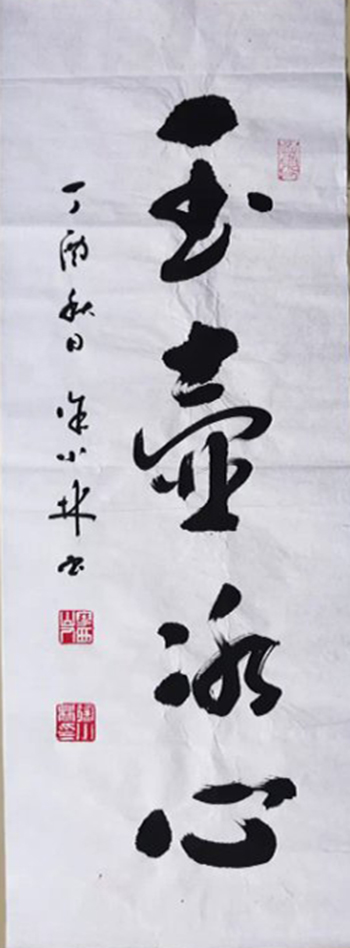 玉壶冰心
丁酉秋日 徐小林书